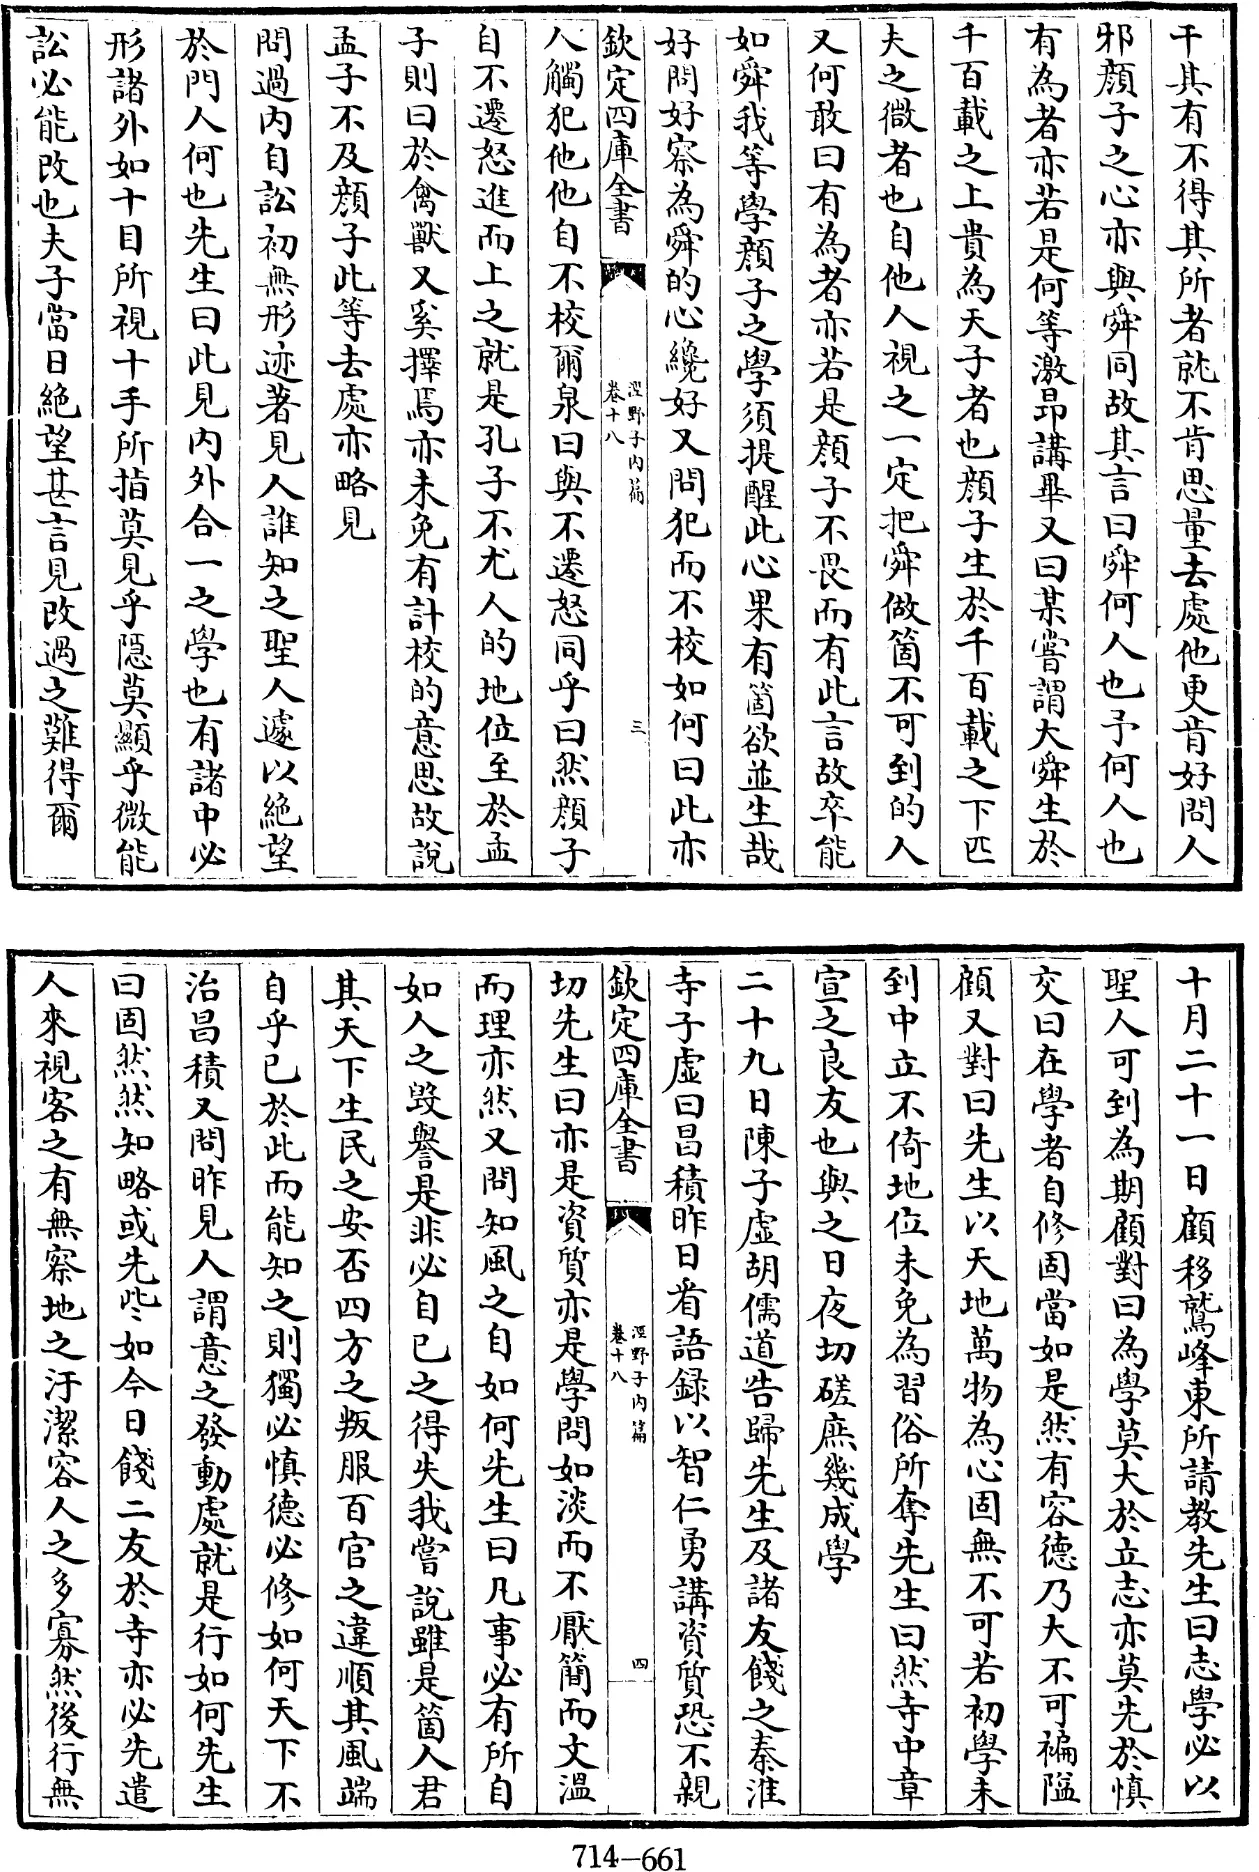 干其有不得其所者就不肯思量去處他更肯好問人
邪顔子之心亦與舜同故其言曰舜何人也予何人也
有為者亦若是何等激昂講畢又曰某嘗謂大舜生於
千百載之上貴為天子者也顔子生於千百載之下匹
夫之微者也自他人視之一定把舜做箇不可到的人
又何敢曰有為者亦若是顔子不畏而有此言故卒能
如舜我等學顔子之學須提醒此心果有箇欲並生哉
好問好察為舜的心纔好又問犯而不校如何曰此亦
欽定四庫全書
涇野子内篇
卷十八
三
人觸犯他他自不校爾泉曰與不遷怒同乎曰然顔子
自不遷怒進而上之就是孔子不尤人的地位至於孟
子則曰於禽獸又奚擇焉亦未免有計校的意思故說
孟子不及顔子此等去處亦略見
問過内自訟初無形迹著見人誰知之聖人遽以絶望
於門人何也先生曰此見内外合一之學也有諸中必
形諸外如十目所視十手所指莫見乎隠莫顯乎微能
訟必能改也夫子當日絶望甚言見改過之難得爾
十月二十一日顧移鷲峰東所請教先生曰志學必以
聖人可到為期顧對曰為學莫大於立志亦莫先於慎
交曰在學者自修固當如是然有容德乃大不可褊隘
顧又對曰先生以天地萬物為心固無不可若初學未
到中立不倚地位未免為習俗所奪先生曰然寺中章
宣之良友也與之日夜切磋庶幾成學
二十九日陳子虚胡儒道告歸先生及諸友餞之秦淮
寺子虚曰昌積昨日看語録以智仁勇講資質恐不親
欽定四庫全書
涇野子内篇
卷十八
四
切先生曰亦是資質亦是學問如淡而不厭簡而文溫
而理亦然又問知風之自如何先生曰凡事必有所自
如人之毀譽是非必自已之得失我嘗說雖是箇人君
其天下生民之安否四方之叛服百官之違順其風端
自乎已於此而能知之則獨必慎德必修如何天下不
治昌積又問昨見人謂意之發動處就是行如何先生
曰固然然知略或先些如今日餞二友於寺亦必先遣
人來視客之有無察地之汙潔容人之多寡然後行無
714-661